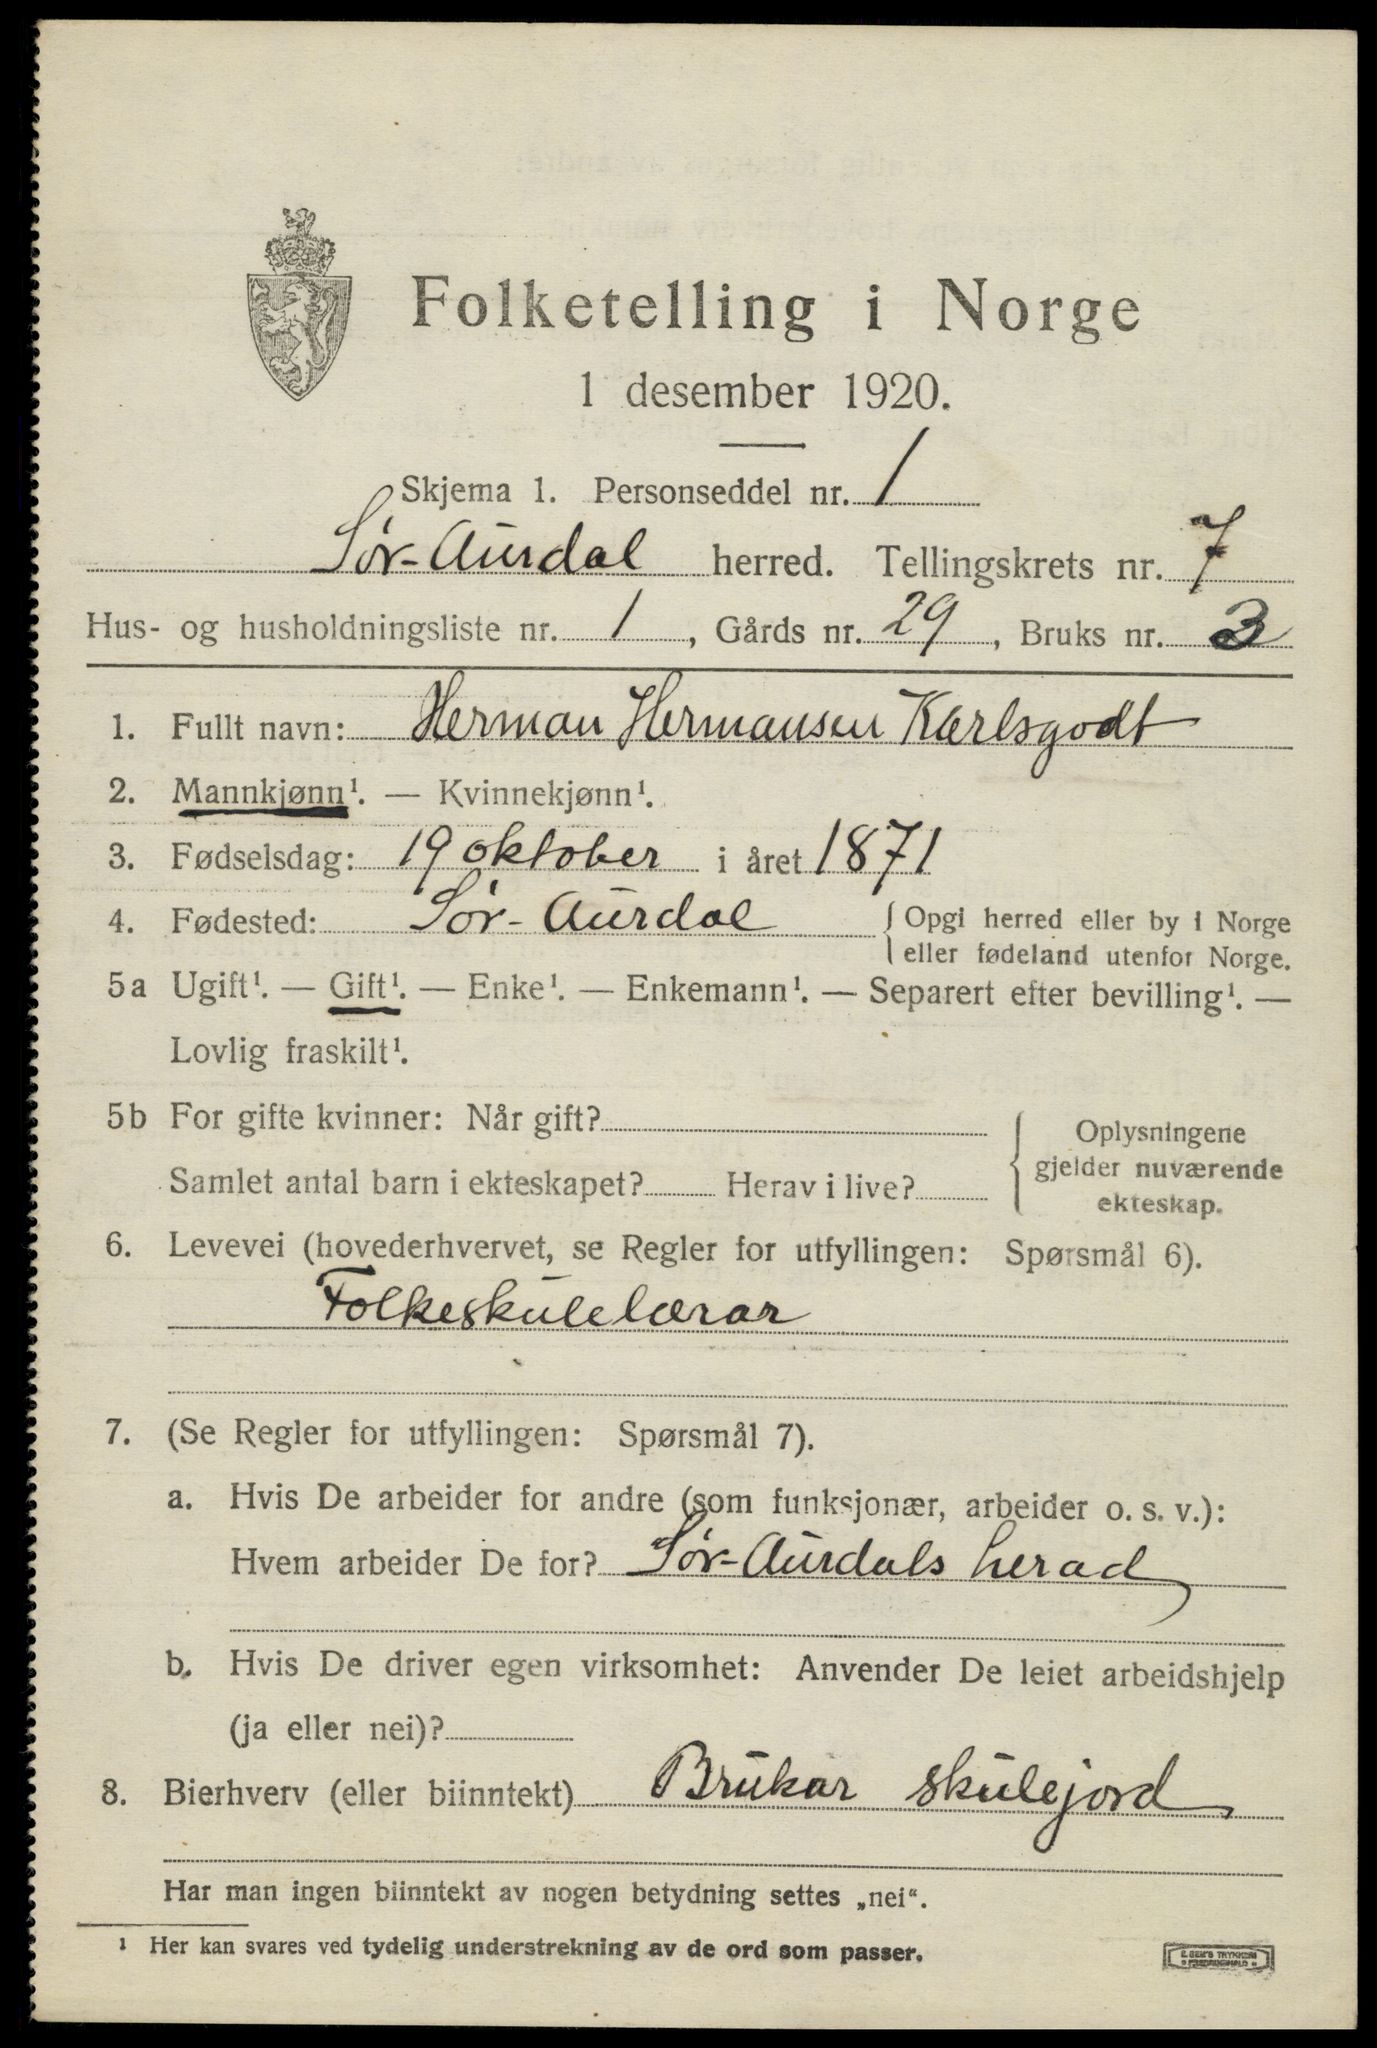 Folketelling i Norge
1 desember 1920.
Skjema 1. Personseddel nr. 1
Sør-Aurdal herred. Tellingskrets nr. 7
Hus- og husholdningsliste nr. 1, Gårds nr. 29, Bruks nr. 3
1. Fullt navn: Herman Hermansen Karlsgodt
2. Mannkjønn¹. — Kvinnekjønn¹.
3. Fødselsdag: 19 oktober i året 1871
4. Fødested: Sør-Aurdal { Opgi herred eller by i Norge
eller fødeland utenfor Norge.
5a Ugift¹. — Gift¹. — Enke¹. — Enkemann¹. — Separert efter bevilling¹. —
Lovlig fraskilt¹.
5b For gifte kvinner: Når gift?
Samlet antal barn i ekteskapet? Herav i live?
{ Oplysningene
gjelder nuværende
ekteskap.
6. Levevei (hovederhvervet, se Regler for utfyllingen: Spørsmål 6).
Folkeskulelærar
7. (Se Regler for utfyllingen: Spørsmål 7).
a. Hvis De arbeider for andre (som funksjonær, arbeider o. s. v.):
Hvem arbeider De for? Sør-Aurdals herad
b. Hvis De driver egen virksomhet: Anvender De leiet arbeidshjelp
(ja eller nei)?
8. Bierhverv (eller biinntekt) Brukar skulejord
Har man ingen biinntekt av nogen betydning settes „nei“.
¹ Her kan svares ved tydelig understrekning av de ord som passer.